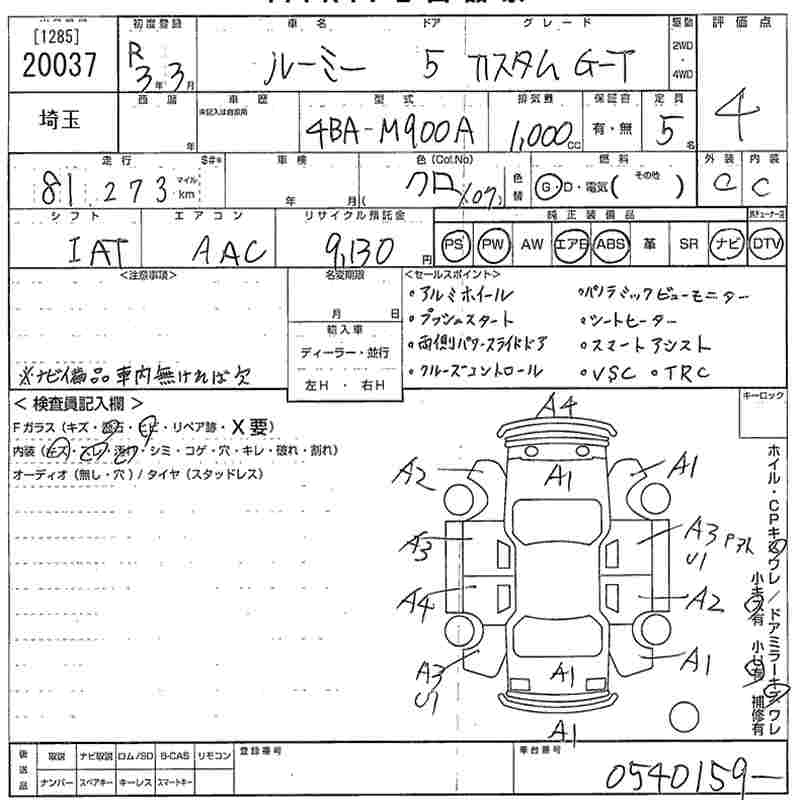 [1285] 初度登録 車名 ドア グレード 駆動 評価点
20037 R3年3月 ルーミー 5 カスタム G-T 2WD・4WD 4
埼玉 西暦 年 車歴 未記入は自家用 型式 4BA-M900A 排気量 1,000cc 保証書 有・無 定員 5名
走行 81,273 マイル km S#* 車検 年 月 色(Col.No) クロ (X07) 色替 燃料 G・D・電気( その他 ) 外装 C 内装 C
シフト IAT エアコン AAC リサイクル預託金 9,130円 純正装備品 PS PW AW エアB ABS 革 SR ナビ DTV
<注意事項> 名変期限 <セールスポイント>
月 日
・アルミホイール ・パノラミックビューモニター
輸入車 ・プッシュスタート ・シートヒーター
ディーラー・並行 ・両側パワースライドドア ・スマートアシスト
※ナビ備品車内無ければ欠 左H・右H ・クルーズコントロール ・VSC ・TRC
<検査員記入欄> キーロック
Fガラス(キズ・飛石・ヒビ・リペア跡・X要)
内装(キズ・コレ・汚れ・シミ・コゲ・穴・キレ・破れ・割れ)
オーディオ(無し・穴)/タイヤ(スタッドレス)
A4
A2 A1 A1
A3 A3 U1
A4 A2
A3 U1 A1 A1
A1
ホイル・CPキズワレ/ドアミラーキズワレ
小キズ有 小凹有 補修有
後送品 取説 ナビ取説 ロム/SD B-CAS リモコン 登録番号 車台番号
ナンバー スペアキー キーレス スマートキー 0540159